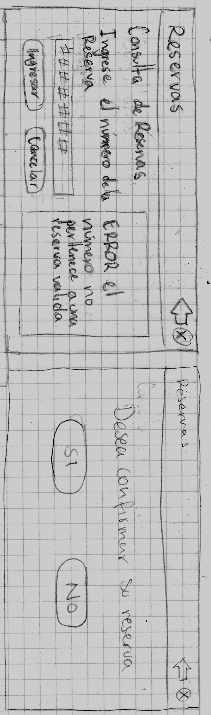 Reservas
Consulta de Reservas
Ingrese el número de la
Reserva
########
Ingresar
Cancelar
ERROR el
número no
pertenece a una
reserva valida
Reservas
Desea confirmar su reserva
SI
No